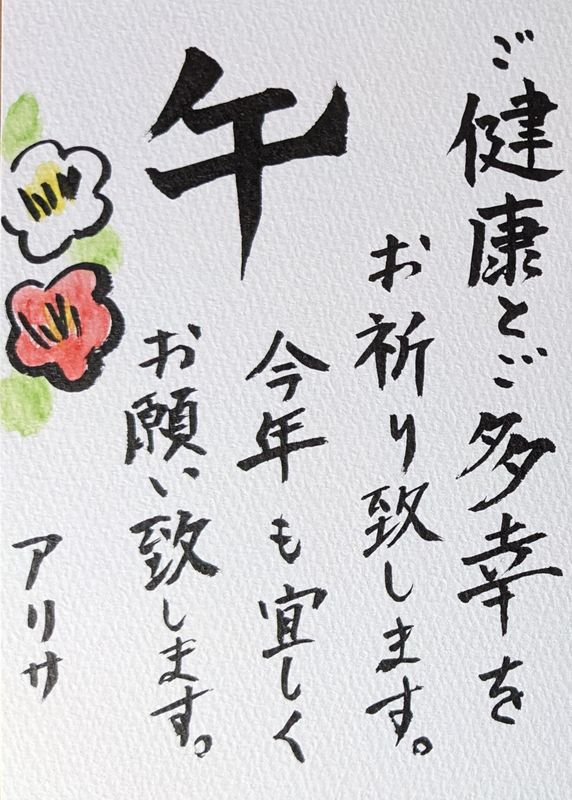 ご健康とご多幸を
お祈り致します。
午
今年も宜しく
お願い致します。
アリサ